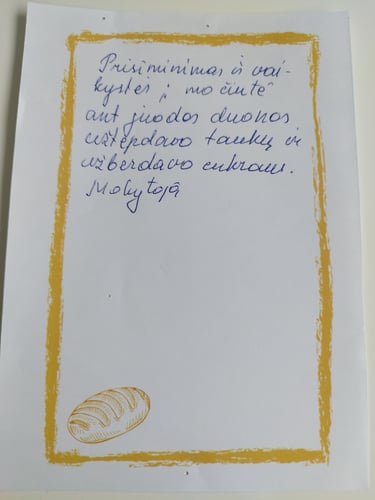 Prisiminimas iš vai-
kystės; močiutė
ant juodos duonos
užtepdavo taukų ir
užberdavo cukraus.
Mokytoja